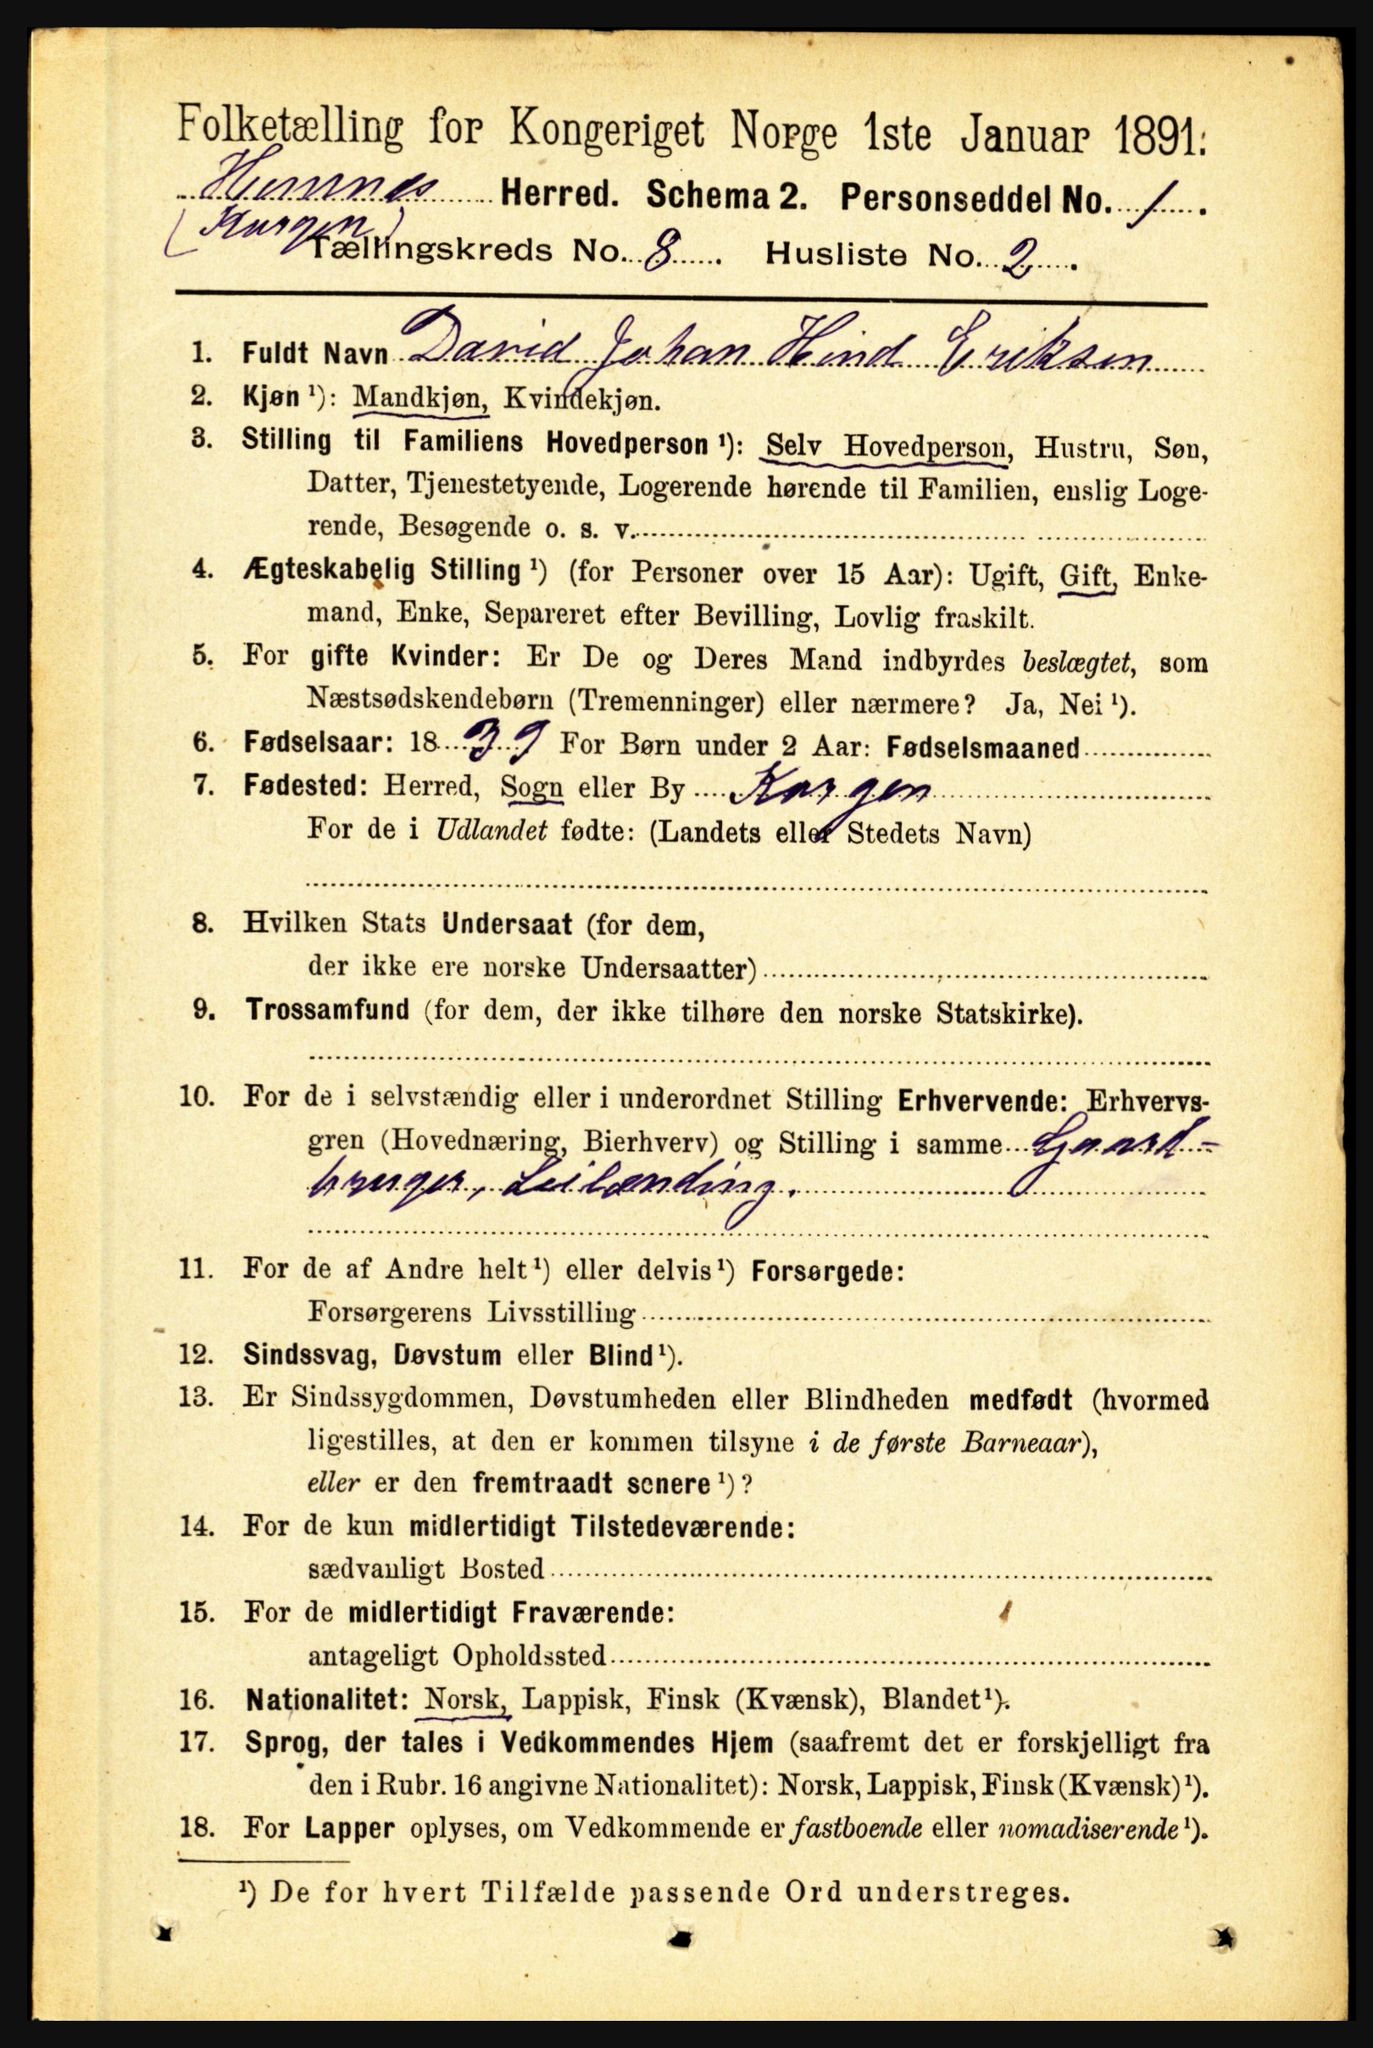 Folketælling for Kongeriget Norge 1ste Januar 1891.
Hemnes Herred. Schema 2. Personseddel No. 1.
(Korgen)
Tællingskreds No. 8. Husliste No. 2.
1. Fuldt Navn David Johan Hind Eriksen
2. Kjøn ¹): Mandkjøn, Kvindekjøn.
3. Stilling til Familiens Hovedperson ¹): Selv Hovedperson, Hustru, Søn,
Datter, Tjenestetyende, Logerende hørende til Familien, enslig Loge-
rende, Besøgende o. s. v.
4. Ægteskabelig Stilling ¹) (for Personer over 15 Aar): Ugift, Gift, Enke-
mand, Enke, Separeret efter Bevilling, Lovlig fraskilt.
5. For gifte Kvinder: Er De og Deres Mand indbyrdes beslægtet, som
Næstsødskendebørn (Tremenninger) eller nærmere? Ja, Nei ¹).
6. Fødselsaar: 1839 For Børn under 2 Aar: Fødselsmaaned
7. Fødested: Herred, Sogn eller By Korgen
For de i Udlandet fødte: (Landets eller Stedets Navn)
8. Hvilken Stats Undersaat (for dem,
der ikke ere norske Undersaatter)
9. Trossamfund (for dem, der ikke tilhøre den norske Statskirke).
10. For de i selvstændig eller i underordnet Stilling Erhvervende: Erhvervs-
gren (Hovednæring, Bierhverv) og Stilling i samme Gaard-
bruger, Leilænding.
11. For de af Andre helt ¹) eller delvis ¹) Forsørgede:
Forsørgerens Livsstilling
12. Sindssvag, Døvstum eller Blind ¹).
13. Er Sindssygdommen, Døvstumheden eller Blindheden medfødt (hvormed
ligestilles, at den er kommen tilsyne i de første Barneaar),
eller er den fremtraadt senere ¹)?
14. For de kun midlertidigt Tilstedeværende:
sædvanligt Bosted
15. For de midlertidigt Fraværende:
antageligt Opholdssted
16. Nationalitet: Norsk, Lappisk, Finsk (Kvænsk), Blandet ¹).
17. Sprog, der tales i Vedkommendes Hjem (saafremt det er forskjelligt fra
den i Rubr. 16 angivne Nationalitet): Norsk, Lappisk, Finsk (Kvænsk) ¹).
18. For Lapper oplyses, om Vedkommende er fastboende eller nomadiserende ¹).
¹) De for hvert Tilfælde passende Ord understreges.